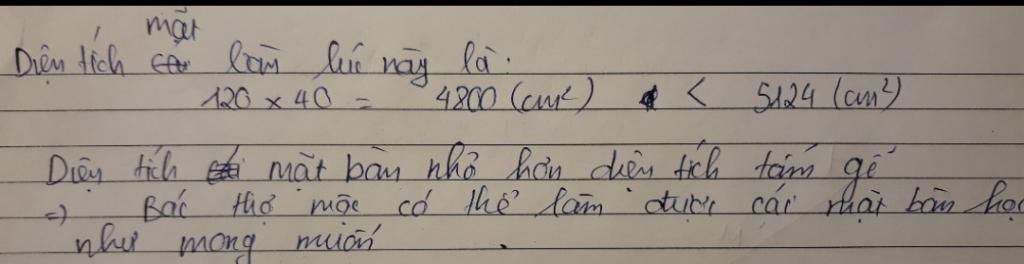 mặt
Diện tích bàn lúc này là:
120 × 40 = 4800 (cm²) < 5124 (cm²)
Diện tích mặt bàn nhỏ hơn diện tích tấm gỗ
=) Bác thợ mộc có thể làm được cái mặt bàn học
như mong muốn.